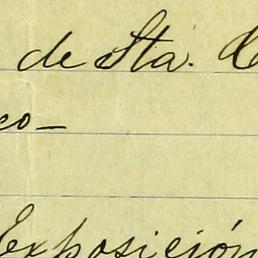 de Sta. C
co—
Exposición